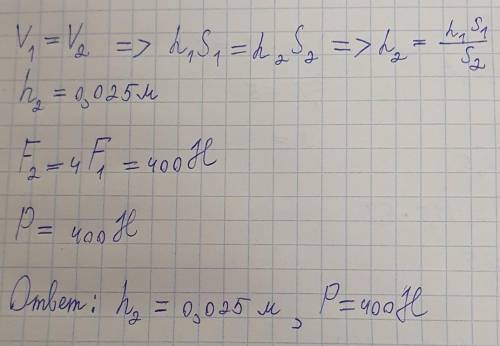 V₁ = V₂ => h₁S₁ = h₂S₂ => h₂ = h₁S₁/S₂
h₂ = 0,025м
F₂ = 4F₁ = 400Н
P = 400Н
Ответ: h₂ = 0,025 м, P = 400Н